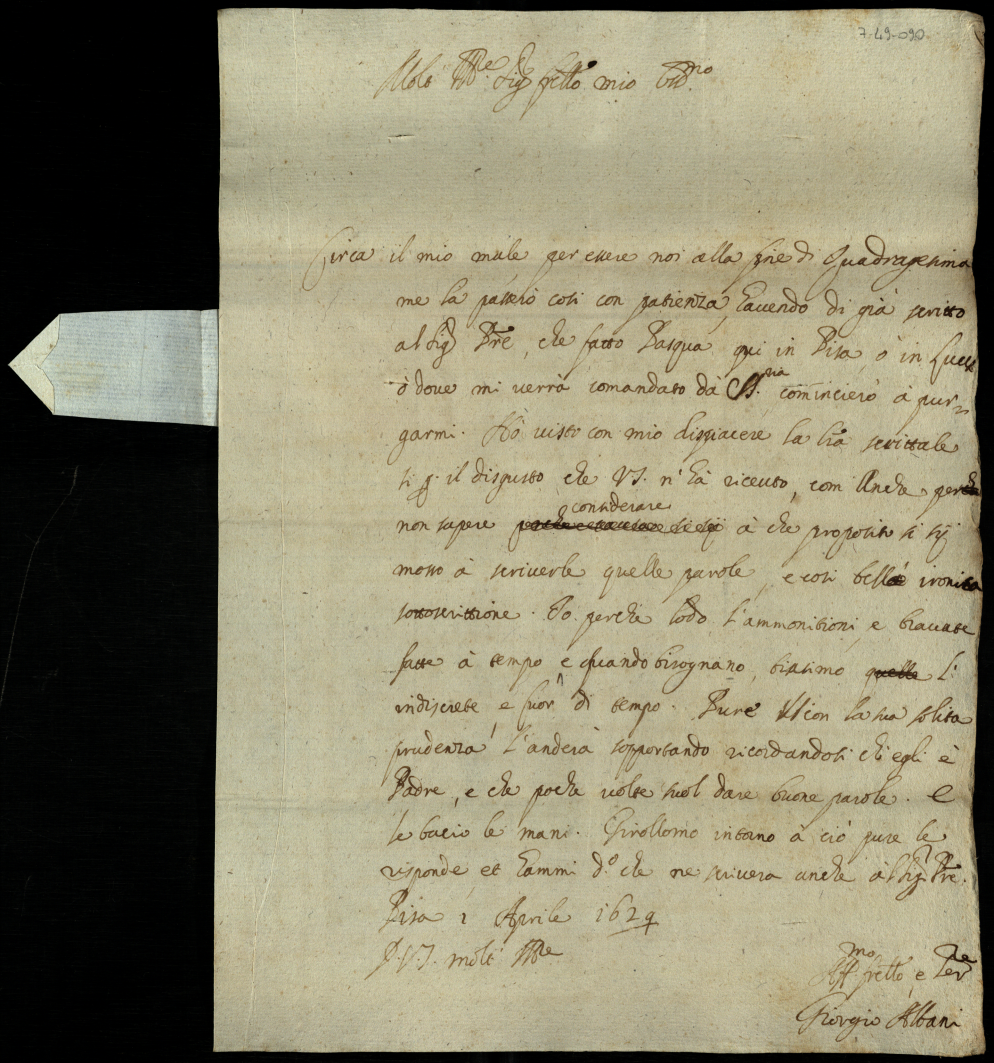 7-49-090
Molto Ill.re Sig.r fr̄ello mio Oss.mo
Circa il mio male per essere noi alla fine di Quadragesima
me la passerò così con patienza, havendo di già scritto
al Sig.r P̄re, che fatto Pasqua, qui in Pisa, ò in Lucca
ò dove mi verrà comandato dà S.ria comincierò à pur=
garmi. Hò visto con mio dispiacere la l̄ra scrittale
si p. il disgusto che VS. n'hà ricevuto, com'Anche perche
non sapere considerare à che proposito si sij
mosso à scriverle quelle parole, e così bella ironica
sottoscrittione. Io perche lodo l'ammonitioni, e bravate
fatte à tempo e quando bisognano, biasimo quelle l'
indiscrete, e fuor di tempo. Pure VS con la sua solita
prudenza l'anderà sopportando ricordandosi ch'egli è
Padre, e che poche volte suol dare buone parole. E
le bacio le mani. Girollomo intorno à ciò pure le
risponde et hammi d.o che ne scriverà anche al Sig.r P̄re.
Pisa 1 Aprile 1629
D. VS. molt' Ill.re
Aff.mo fr̄ello, e Ser.re
Giorgio Albani